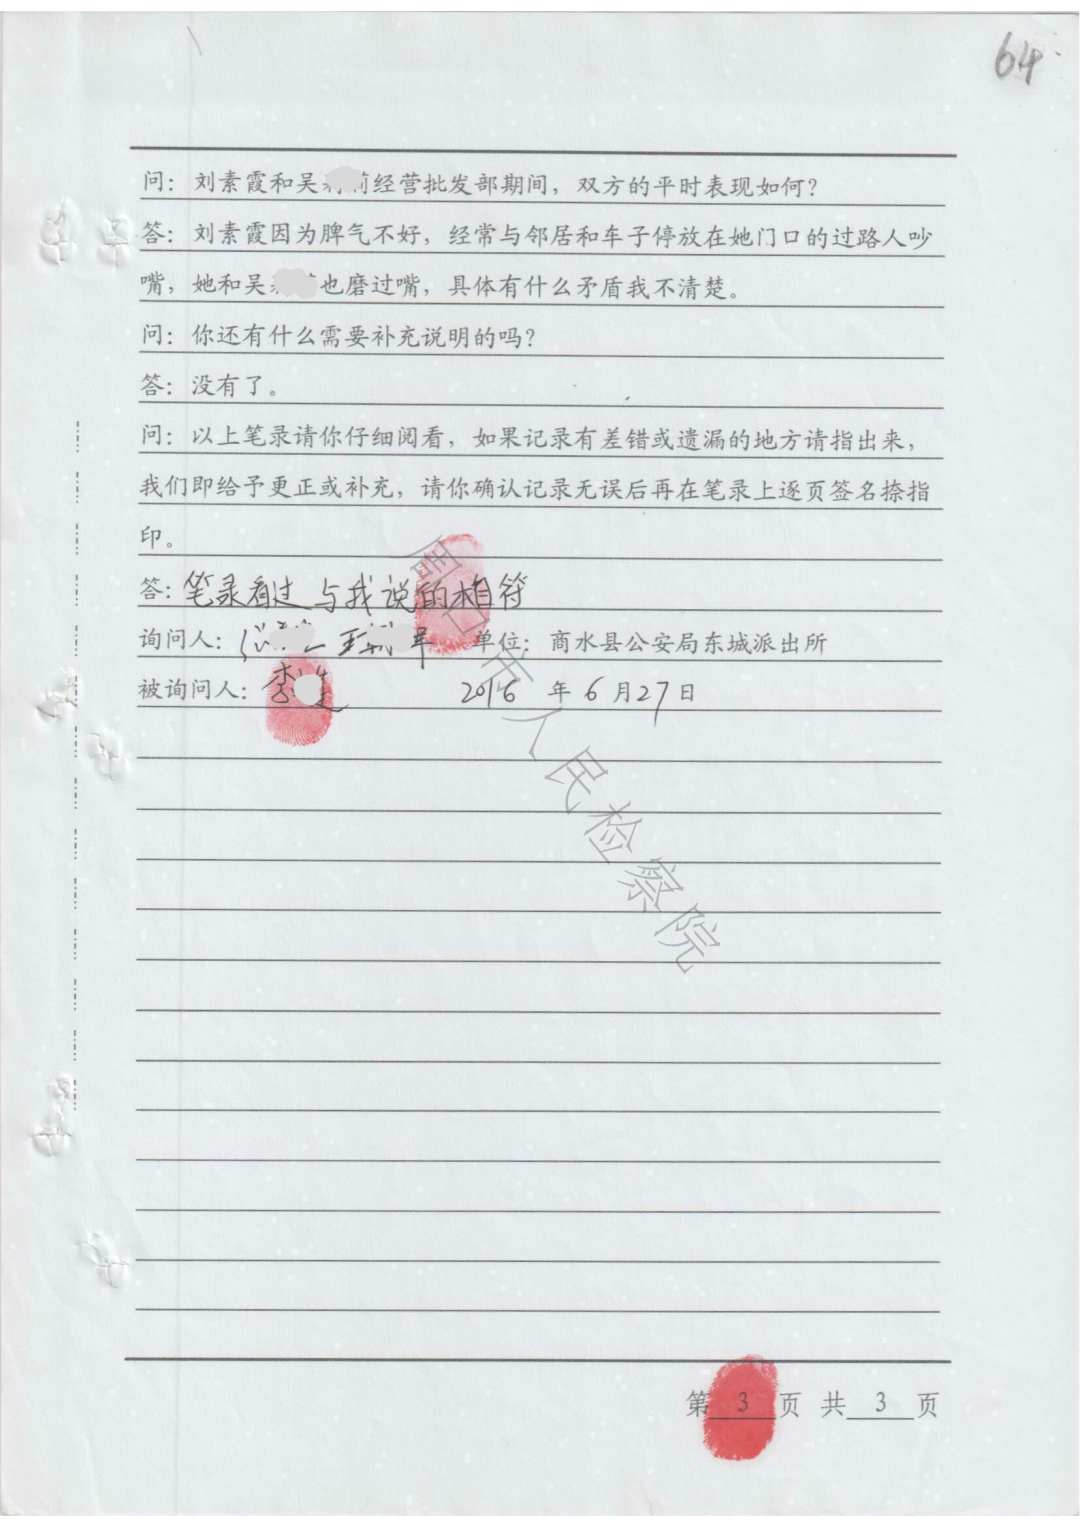 64
问：刘素霞和吴 莉经营批发部期间，双方的平时表现如何？
答：刘素霞因为脾气不好，经常与邻居和车子停放在她门口的过路人吵
嘴，她和吴 也磨过嘴，具体有什么矛盾我不清楚。
问：你还有什么需要补充说明的吗？
答：没有了。
问：以上笔录请你仔细阅看，如果记录有差错或遗漏的地方请指出来，
我们即给予更正或补充，请你确认记录无误后再在笔录上逐页签名捺指
印。
答：笔录看过与我说的相符
询问人： 王 单位：商水县公安局东城派出所
被询问人：李 2016 年 6 月 27 日
周口市人民检察院
第 3 页 共 3 页